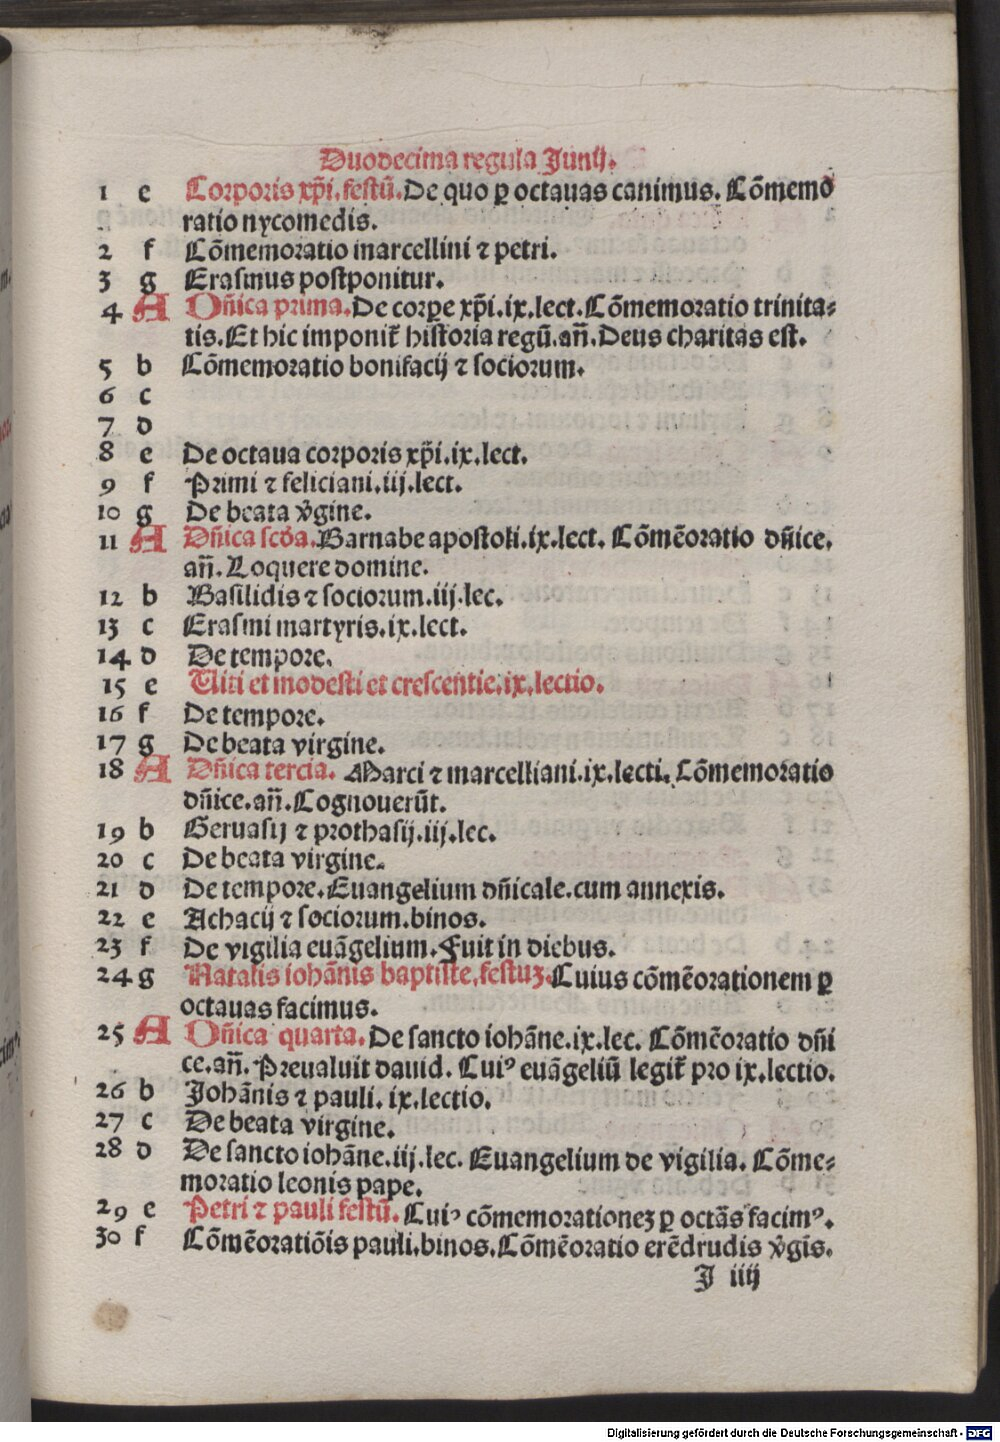 Duodecima regula Junij.
1 e Corporis xp̄i. festū. De quo ꝑ octauas canimus. Cōmemo
ratio nycomedis.
2 f Cōmemoratio marcellini ⁊ petri.
3 g Erasmus postponitur.
4 A Dn̄ica prima. De corꝑe xp̄i. ix. lect. Cōmemoratio trinita⸗
tis. Et hic imponit᷑ historia regū. an̄. Deus charitas est.
5 b Cōmemoratio bonifacij ⁊ sociorum.
6 c
7 d
8 e De octaua corporis xp̄i. ix. lect.
9 f Primi ⁊ feliciani. iij. lect.
10 g De beata v̾gine.
11 A Dn̄ica scd̄a. Barnabe apostoli. ix. lect. Cōmēoratio dn̄ice.
an̄. Loquere domine.
12 b Basilidis ⁊ sociorum. iij. lec.
13 c Erasmi martyris. ix. lect.
14 d De tempore.
15 e Uiti et modesti et crescentie. ix. lectio.
16 f De tempore.
17 g De beata virgine.
18 A Dn̄ica tercia. Marci ⁊ marcelliani. ix. lecti. Cōmemoratio
dn̄ice. an̄. Cognouerūt.
19 b Geruasij ⁊ prothasij. iij. lec.
20 c De beata virgine.
21 d De tempore. Euangelium dn̄icale. cum annexis.
22 e Achacij ⁊ sociorum. binos.
23 f De vigilia euāgelium. Fuit in diebus.
24 g Natalis iohānis baptiste. festuꝫ. Cuius cōmēorationem ꝑ
octauas facimus.
25 A Dn̄ica quarta. De sancto iohāne. ix. lec. Cōmēoratio dn̄i
ce. an̄. Preualuit dauid. Cuiꝰ euāgeliū legit᷑ pro ix. lectio.
26 b Johānis ⁊ pauli. ix. lectio.
27 c De beata virgine.
28 d De sancto iohāne. iij. lec. Euangelium de vigilia. Cōme⸗
moratio leonis pape.
29 e Petri ⁊ pauli festū. Cuiꝰ cōmemorationeꝫ ꝑ octās facimꝰ.
30 f Cōmēoratiōis pauli. binos. Cōmēoratio erēdrudis v̾gīs.
J iiij
Digitalisierung gefördert durch die Deutsche Forschungsgemeinschaft - DFG